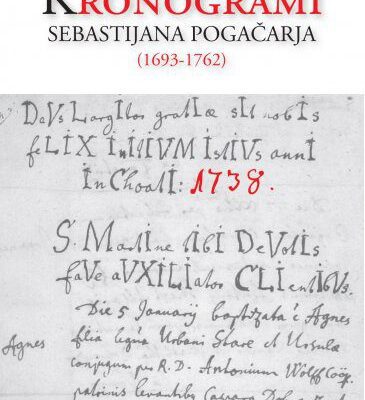 KRONOGRAMI
SEBASTIJANA POGAČARJA
(1693-1762)
DaVs Largitor gratiæ sIt nobIs
feLIX InItIVM IstIVs annI
InChoatI: 1738.
S. MartIne tIbI DeVotIs
faVe aVXILIator CLIentIbVs.
Die 5 Januarij baptizata ē Agnes
Agnes
filia legitima Urbani Stare et Ursulæ
conjugum per R. D. Antonium Wolff Coop.
patrinis levantibus